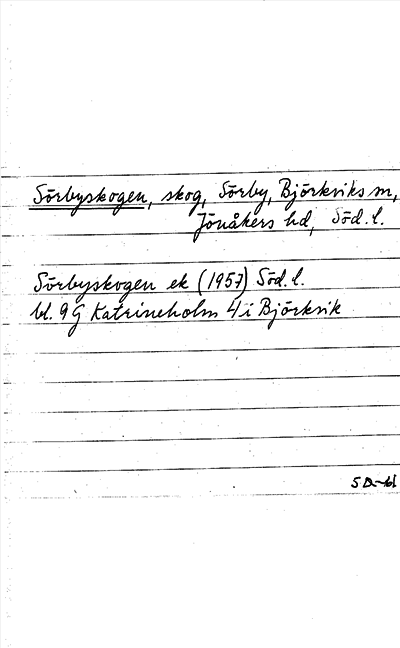 Sörbyskogen, skog, Sörby, Björkviks sn,
Jönåkers hd, Söd. l.
Sörbyskogen ek (1957) Söd. l.
bl. 9G Katrineholm 4 i Björkvik